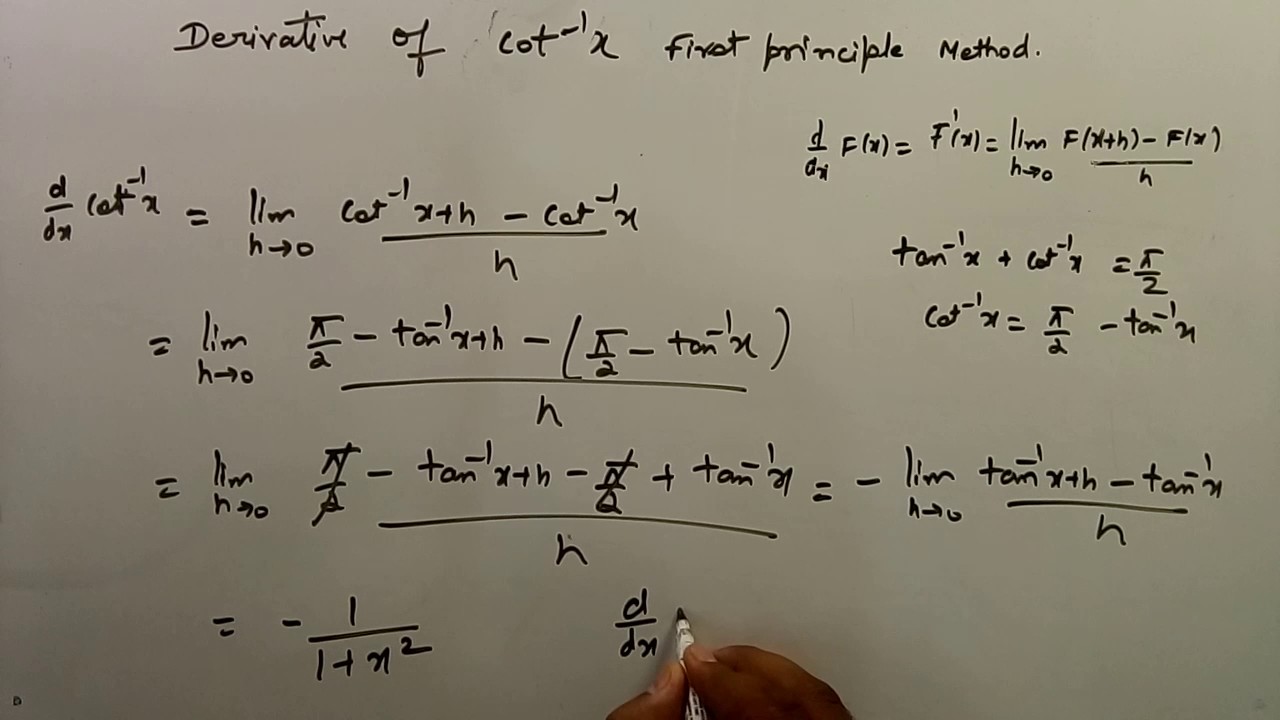 Derivative of cot⁻¹x First principle Method.
d/dx F(x) = F'(x) = lim h→0 F(x+h) - F(x) / h
d/dx cot⁻¹x = lim h→0 cot⁻¹x+h - cot⁻¹x / h
tan⁻¹x + cot⁻¹x = π/2
cot⁻¹x = π/2 - tan⁻¹x
= lim h→0 π/2 - tan⁻¹x+h - (π/2 - tan⁻¹x) / h
= lim h→0 π/2 - tan⁻¹x+h - π/2 + tan⁻¹x / h = - lim h→0 tan⁻¹x+h - tan⁻¹x / h
= - 1/1+x² d/dx